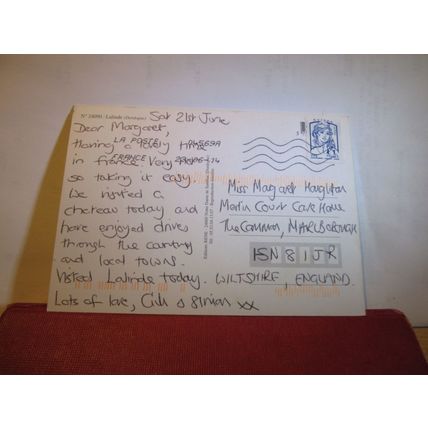 N° 24091 - Lalinde (Dordogne)
Sat 21st June
Dear Margaret,
Having a lovely time
in France. Very hot
so taking it easy.
We visited a
chateau today and
have enjoyed drives
through the country
and local towns.
Visited Lalinde today.
Lots of love,
xx
LA POSTE
FRANCE
Miss Margaret Houghton
Merlin Court Care Home
The Common, MARLBOROUGH
SN8 1JR
WILTSHIRE, ENGLAND.